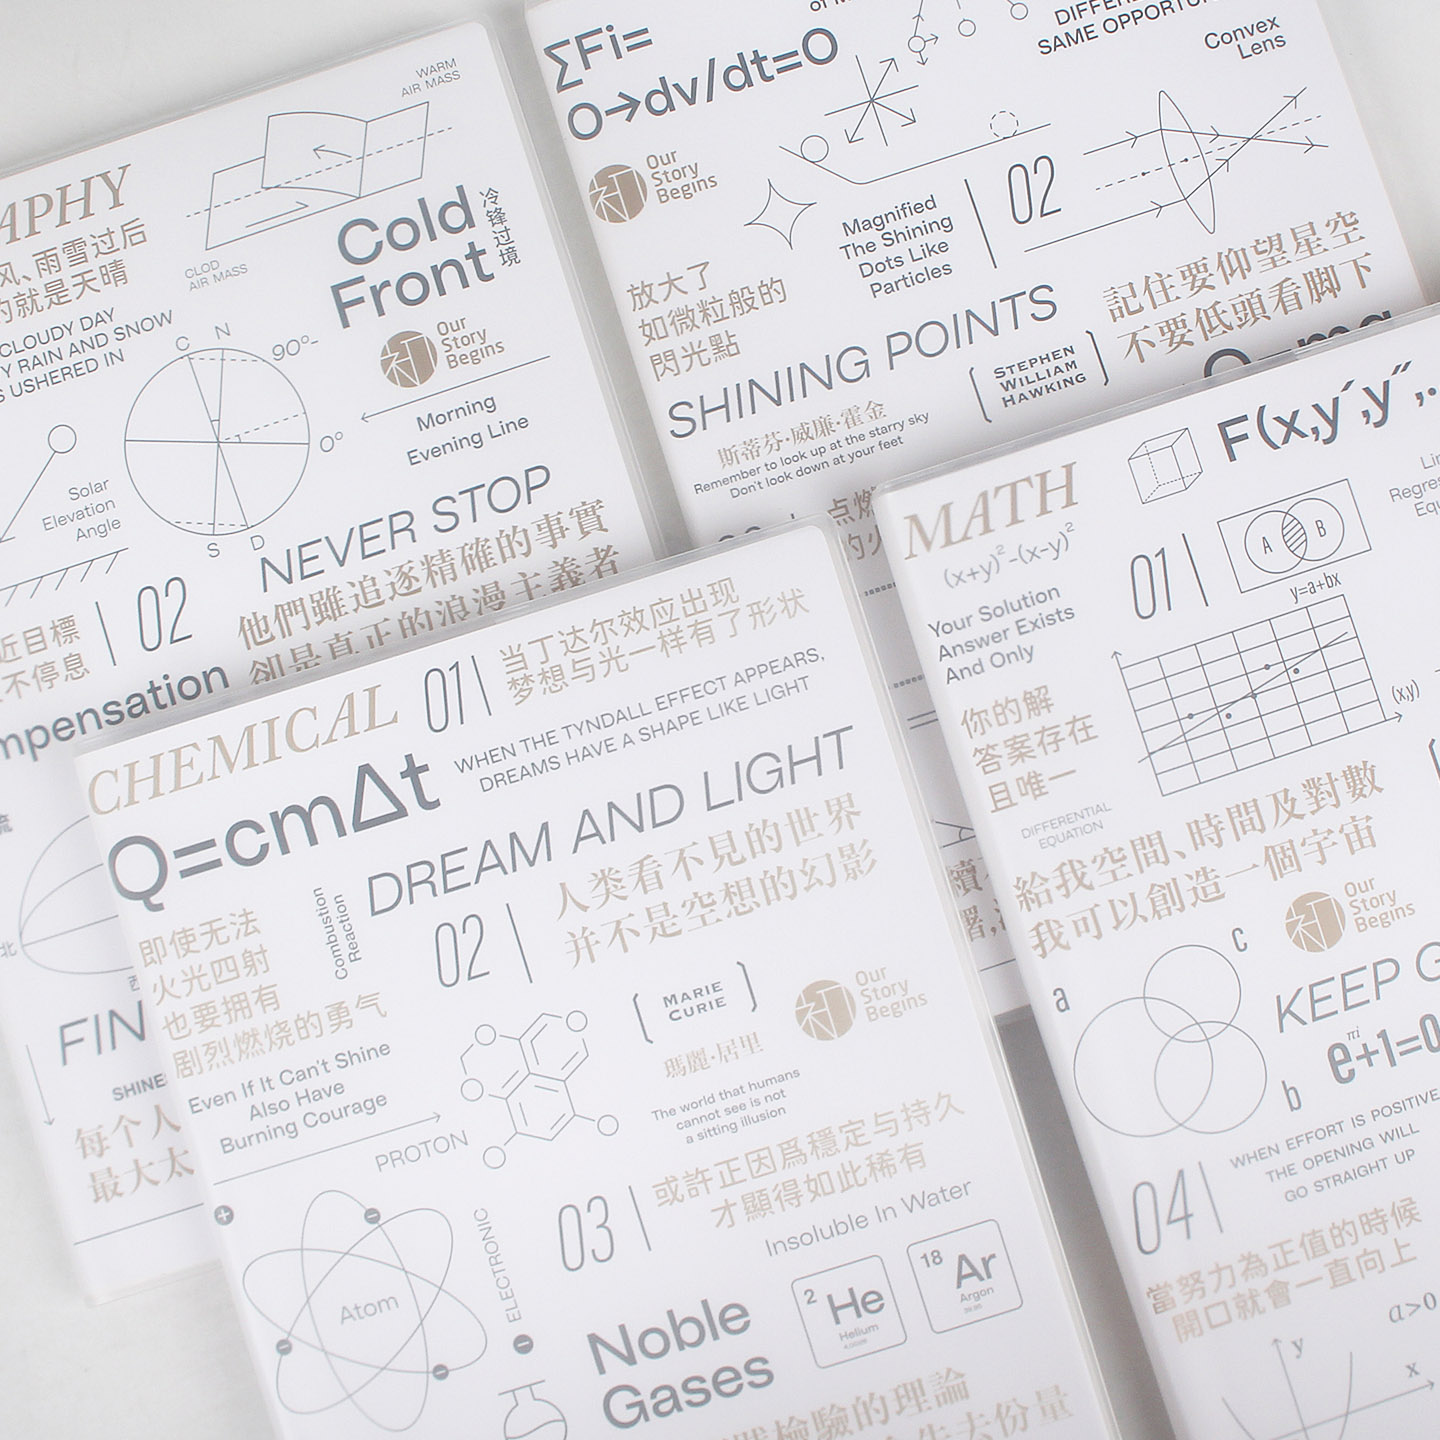 WARM
AIR MASS
APHY
风、雨雪过后
的就是天晴
CLOD
AIR MASS
Cold
Front
冷锋过境
CLOUDY DAY
Y RAIN AND SNOW
S USHERED IN
C
N
90°-
0°
S
D
Our
Story
Begins
Morning
Evening Line
Solar
Elevation
Angle
NEVER STOP
02
他們雖追逐精確的事實
卻是真正的浪漫主義者
近目標
不停息
mpensation
北
西
FIN
SHINE
每个人
最大太
ΣFi=
O→dv/dt=O
DIFFE
SAME OPPORTU
Convex
Lens
Our
Story
Begins
Magnified
The Shining
Dots Like
Particles
02
放大了
如微粒般的
閃光點
SHINING POINTS
記住要仰望星空
不要低頭看脚下
STEPHEN
WILLIAM
HAWKING
斯蒂芬·威廉·霍金
Remember to look up at the starry sky
Don't look down at your feet
点燃
的火
CHEMICAL
01
当丁达尔效应出现
梦想与光一样有了形状
Q=cmΔt
WHEN THE TYNDALL EFFECT APPEARS,
DREAMS HAVE A SHAPE LIKE LIGHT
DREAM AND LIGHT
即使无法
火光四射
也要拥有
剧烈燃烧的勇气
Combustion
Reaction
02
人类看不见的世界
并不是空想的幻影
MARIE
CURIE
瑪麗·居里
Our
Story
Begins
Even If It Can't Shine
Also Have
Burning Courage
The world that humans
cannot see is not
a sitting illusion
PROTON
03
或許正因爲穩定与持久
才顯得如此稀有
Insoluble In Water
Atom
ELECTRONIC
Noble
Gases
2
He
Helium
18
Ar
Argon
檢驗的理論
失去份量
MATH
F(x,y′,y″,..
(x+y)²-(x-y)²
01
A
B
Your Solution
Answer Exists
And Only
y=a+bx
(x,y)
你的解
答案存在
且唯一
DIFFERENTIAL
EQUATION
給我空間、時間及對數
我可以創造一個宇宙
Our
Story
Begins
a
c
b
KEEP G
e^πi+1=0
WHEN EFFORT IS POSITIVE,
THE OPENING WILL
GO STRAIGHT UP
04
當努力為正值的時候
開口就會一直向上
a>0
y
x